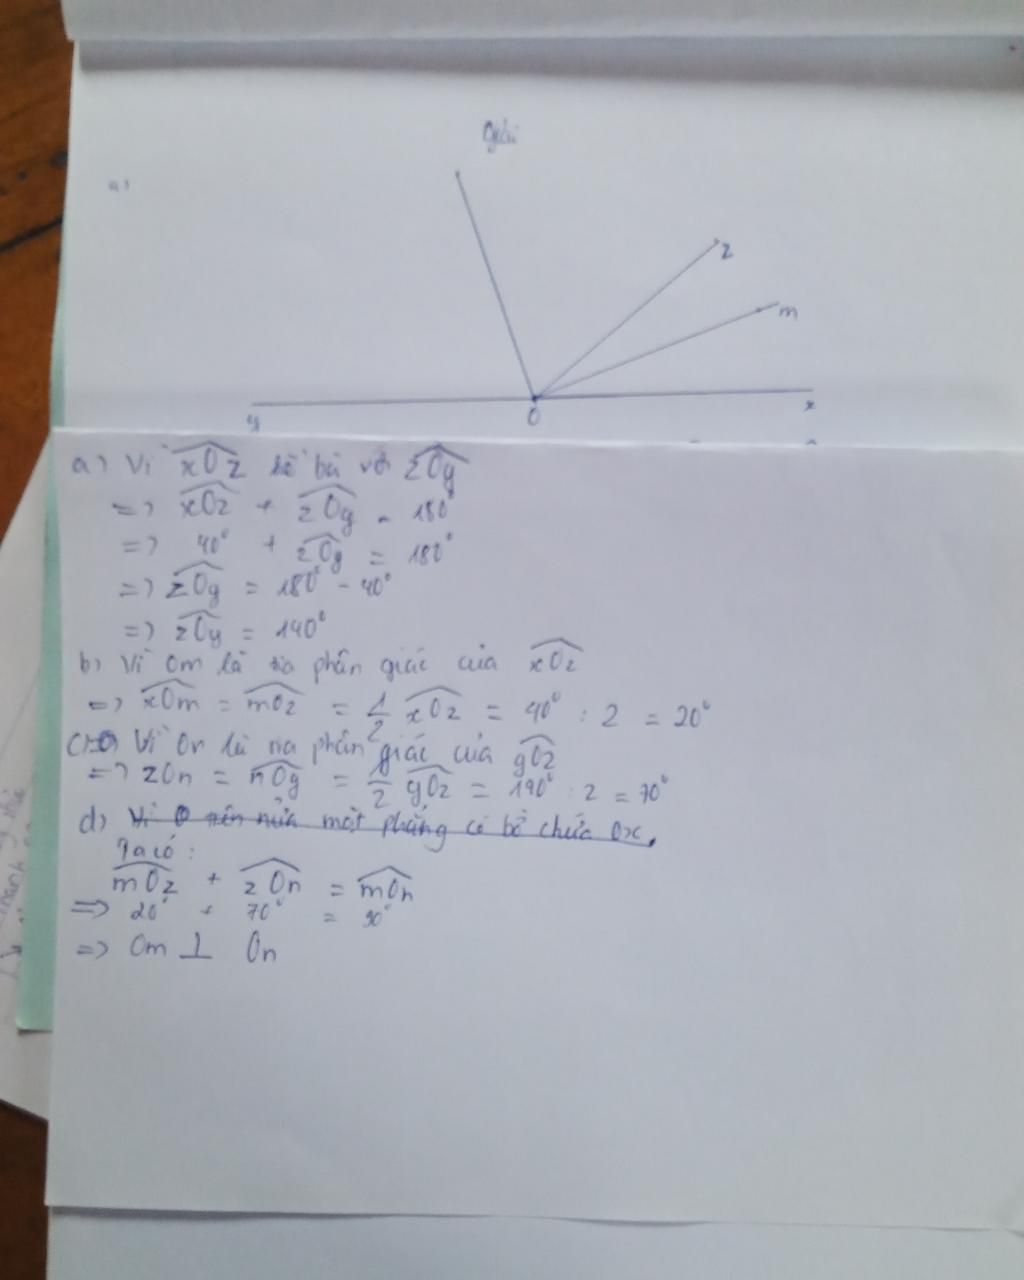 Giải
a)
z
m
y
O
x
a) Vì xOz kề bù với zOy
=> xOz + zOy = 180°
=> 40° + zOy = 180°
=> zOy = 180° - 40°
=> zOy = 140°
b) Vì Om là tia phân giác của xOz
=> xOm = mOz = 1/2 xOz = 40° : 2 = 20°
c) Vì On là tia phân giác của yOz
=> zOn = nOy = 1/2 yOz = 140° : 2 = 70°
d) Vì O nên nửa mặt phẳng có bờ chứa Ox,
Ta có :
mOz + zOn = mOn
=> 20° + 70° = 90°
=> Om ⊥ On